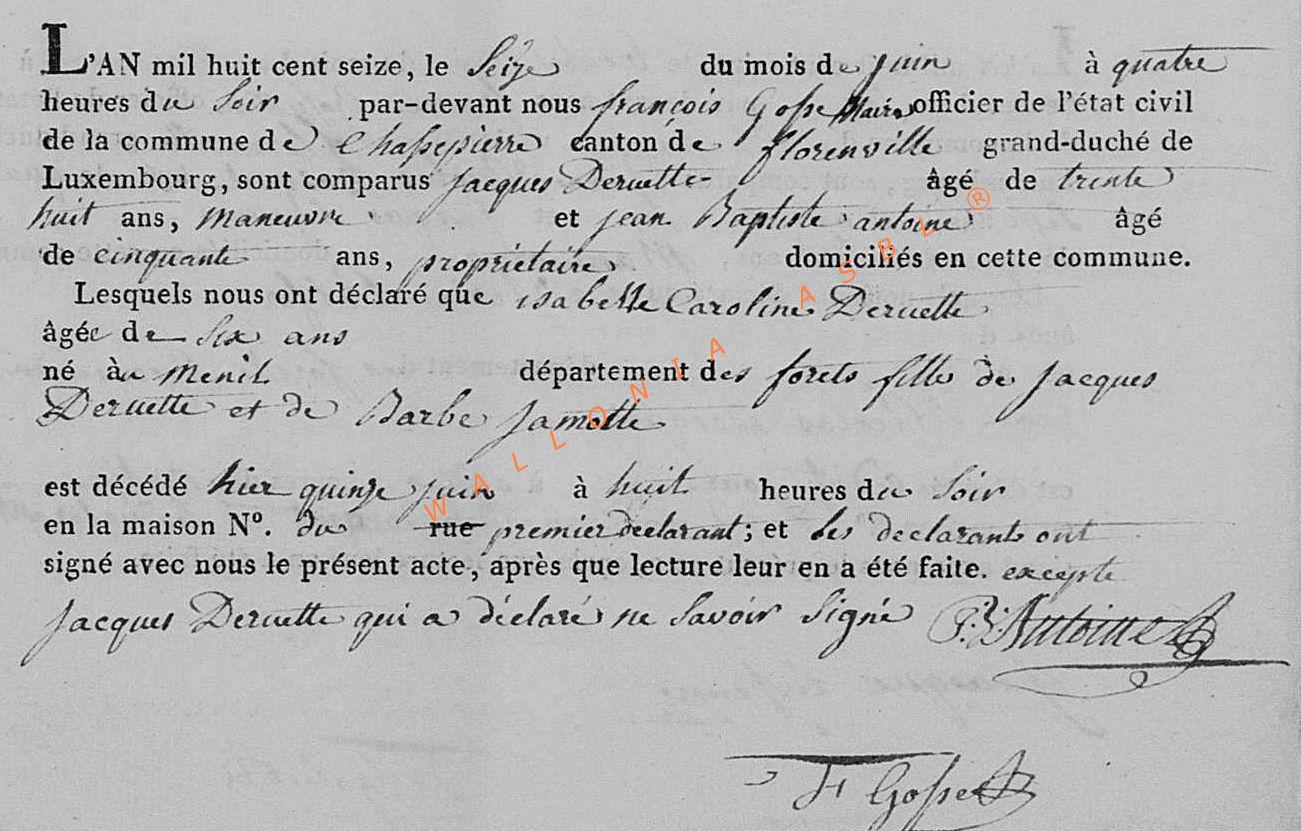 L'AN mil huit cent seize, le Seize du mois de juin à quatre
heures du Soir par-devant nous françois Gosse Maire officier de l'état civil
de la commune de Chassepierre canton de florenville grand-duché de
Luxembourg, sont comparus jacques Deruette âgé de trente
huit ans, Maneuvre et jean Baptiste antoine âgé
de cinquante ans, propriétaire domiciliés en cette commune.
Lesquels nous ont déclaré que isabelle Caroline Deruette
âgée de Six ans
né à au Menil département des forets fille de Jacques
Deruette et de Barbe Jamotte
est décédé hier quinze juin à huit heures du Soir
en la maison N°. du rue premier declarant; et les declarants ont
signé avec nous le présent acte, après que lecture leur en a été faite. excepte
Jacques Deruette qui a déclaré ne Savoir Signé Antoine
F Gosse
WALLONIA ASBL ®